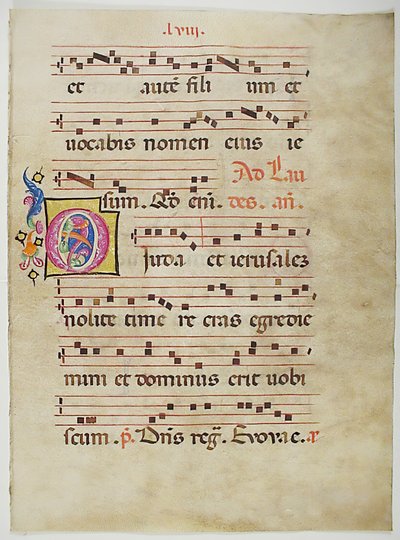 .lviij.
et autē fili um et
uocabis nomen eius ie
sum. Qđ eni. Ad Lau
des. an̄.
O iuda et ierusalez
nolite time re cras egredie
mini et dominus erit uobi
scum. p̄. Dn̄s reg̃. Evovae.